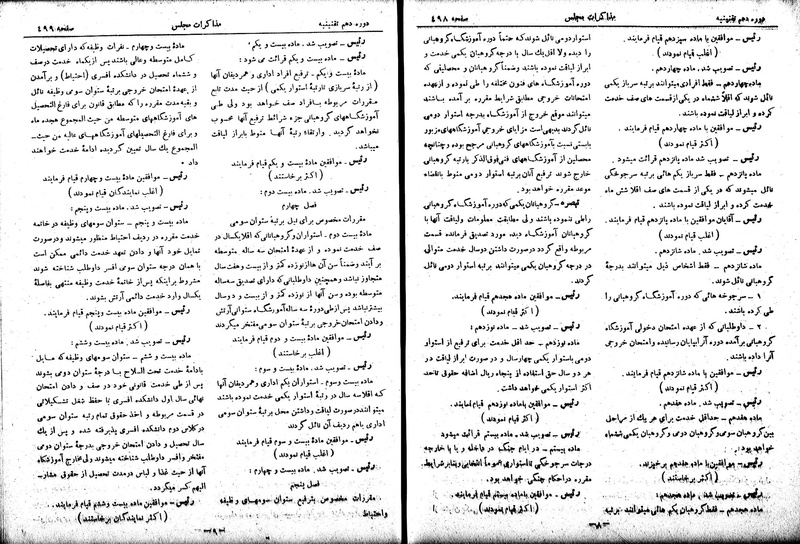 دوره دهم تقنینیه
مذاکرات مجلس
صفحه ۴۹۸
رئیس ـ موافقین با ماده سیزدهم قیام فرمایند.
(اغلب قیام نمودند)
رئیس ـ تصویب شد. ماده چهاردهم.
ماده چهاردهم ـ فقط افرادی میتوانند برتبه سربازیکمی
نائل شوند که اقلا ششماه در یکی از قسمت های صف خدمت
کرده و ابراز لیاقت نموده باشند.
رئیس ـ موافقین با ماده چهاردهم قیام فرمایند.
(اکثر قیام نمودند)
رئیس ـ تصویب شد ماده پانزدهم قرائت میشود.
ماده پانزدهم ـ فقط سرباز یکم هائی برتبه سرجوخگی
نائل میشوند که در یکی از قسمت های صف اقلا شش ماه
خدمت کرده و ابراز لیاقت نموده باشند.
رئیس ـ آقایان موافقین با ماده پانزدهم قیام فرمایند.
(اغلب قیام نمودند)
رئیس ـ تصویب شد. ماده شانزدهم.
ماده شانزدهم ـ فقط اشخاص ذیل میتوانند بدرجۀ
گروهبان سومی نائل شوند.
۱ ـ سرجوخه هائی که دوره آموزشگاه گروهبانی را
طی کرده باشند.
۲ ـ داوطلبانی که از عهده امتحان دخولی آموزشگاه
گروهبانی برآمده دوره آنرا بپایان رسانیده و امتحان خروجی
آنرا داده باشند.
رئیس ـ موافقین با ماده شانزدهم قیام فرمایند.
(اکثر قیام نمودند)
رئیس ـ تصویب شد. ماده هفدهم.
ماده هفدهم ـ حداقل خدمت برای هر یک از مراحل
بین گروهبان سومی و گروهبان دومی و گروهبان یکمی ششماه
خواهد بود.
رئیس ـ موافقین با ماده هفدهم برخیزند.
(اکثر برخاستند)
رئیس ـ تصویب شد. ماده هجدهم:
ماده هجدهم ـ فقط گروهبان یکم هائی میتوانند برتبه
استوار دومی نائل شوند که حتماً دوره آموزشگاه گروهبانی
را دیده و لا اقل یک سال با درجه گروهبان یکمی خدمت و
ابراز لیاقت نموده باشند و ضمناً گروهبانان و محصلینی که
دوره آموزشگاه های فنون مختلفه را طی نموده و از عهده
امتحانات خروجی مطابق شرایط مقرره بر آمده باشند
میتوانند موقع خروج از آموزشگاه بدرجه استوار دومی
نائل گردند بدیهی است مزایای خروجی آموزشگاههای مزبور
بایستی نسبت به آموزشگاههای گروهبانی مرجح بوده و چنانچه
محصلین از آموزشگاههای فنی فوق الذکر با رتبه گروهبانی
خارج شوند ترفیع آنان برتبه استوار دومی منوط بانقضاء
موعد مقرره خواهد بود.
تبصره ـ گروهبانان یکمی که دوره آموزشگاه گروهبانی
راطی ننموده باشند ولی مطابق معلومات و لیاقت آنها با
گروهبانان آموزشگاه دیده مورد تصدیق فرمانده قسمت
مربوطه واقع گردد درصورت داشتن دوسال خدمت متوالی
در درجه گروهبان یکمی میتوانند برتبه استوار دومی نائل
گردند.
رئیس ـ موافقین با ماده هجدهم قیام فرمایند.
(اکثر قیام نمودند)
رئیس ـ تصویب شد ـ ماده نوزدهم:
ماده نوزدهم ـ حد اقل خدمت برای ترفیع از استوار
دومی باستوار یکمی چهارسال و در صورت ابراز لیاقت در
هر دو سال حق استفاده از پنجاه ریال اضافه حقوق تاحد
اکثر استوار یکمی خواهد داشت.
رئیس ـ موافقین باماده نوزدهم قیام نمایند.
(اکثر قیام نمودند)
رئیس ـ تصویب شد. ماده بیستم قرائت میشود
ماده بیستم ـ در ایام جنگ، در داخله و یا خارجه
درجات سرجوخگی تا استواری عموماً انتخابی وبنابر شرایط
مقرره در احکام جنگی خواهد بود.
رئیس ـ موافقین باماده بیستم قیام فرمایند.
(اکثر قیام نمودند)
ـ۸ـ
دوره دهم تقنینیه
مذاکرات مجلس
صفحه ۴۹۹
رئیس ـ تصویب شد. ماده بیست و یکم.
ماده بیست و یکم قرائت می شود:
ماده بیست و یکم ـ ترفیع افراد اداری و همردیفان آنها
(از رتبۀ سربازی تارتبۀ استوار یکمی) از حیث مدت تابع
مقررات مربوطه بافراد صف خواهد بود ولی طی
آموزشگاههای گروهبانی جزء شرائط ترفیع آنها محسوب
نخواهد گردید. وارتقاء رتبۀ آنها منوط بابراز لیاقت
میباشد.
رئیس ـ موافقین مادۀ بیست و یکم قیام فرمایند
(اکثر برخاستند)
رئیس ـ تصویب شد. ماده بیست دوم:
فصل چهارم
مقررات مخصوص برای نیل برتبۀ ستوان سومی
ماده بیست دوم ـ استواران و گروهبانانی که اقلا یکسال در
صف خدمت نموده و از عهدۀ امتحان سه ساله متوسطه
بر آیند وضمناً سن آن ها از نوزده کمتر و از بیست و هفت سال
متجاوز نباشد و همچنین داوطلبانی که دارای تصدیق سه ساله
متوسطه بوده وسن آنها از نوزده کمتر و از بیست و دو سال
بیشتر نباشد پس از طی دورۀ سه ساله آموزشگاه ستوانی آرتش
ودادن امتحان خروجی برتبۀ ستوان سومی مفتخر میگردند
رئیس ـ موافقین مادۀ بیست و دوم قیام فرمایند
(اغلب برخاستند)
رئیس ـ تصویب شد. ماده بیست و سوم:
مادۀ بیست وسوم ـ استواران یکم اداری و همردیفان آنها
که اقلا سه سال در رتبۀ استوار یکمی خدمت نموده باشند
میتوانند درصورت لیاقت و داشتن محل برتبۀ ستوان سومی
اداری یاهم ردیف آن نائل گردند
رئیس ـ موافقین مادۀ بیست و سوم قیام فرمایند
(اغلب قیام نمودند)
رئیس ـ تصویب شد. ماده بیست و چهارم:
فصل پنجم
مقررات مخصوص بترفیع ستوان سومهای وظیفه
واحتیاط
مادۀ بیست وچهارم ـ نفرات وظیفه که دارای تحصیلات
کامل متوسطه وعالی باشند پس از یکماه خدمت در صف
و ششماه تحصیل در دانشکده افسری (احتیاط) و برآمدن
از عهدۀ امتحان خروجی برتبۀ ستوان سومی وظیفه نائل
و بقیه مدت مقرره را که مطابق قانون برای فارغ التحصیل
های آموزشگاههای متوسطه من حیث المجموع هجده ماه
و برای فارغ التحصیلهای آموزشگاههای عالیه من حیث
المجموع یک سال تعیین گردیده ادامۀ خدمت خواهند
داد.
رئیس ـ موافقین ماده بیست و چهارم قیام فرمایند
(اغلب نمایندگان قیام نمودند)
رئیس ـ تصویب شد. ماده بیست و پنجم:
ماده بیست و پنجم ـ ستوان سومهای وظیفه در خاتمه
خدمت مقرره در ردیف احتیاط منظور میشوند و در صورت
تمایل خود آنها و دادن تعهد خدمت دائمی ممکن است
با همان درجه ستوان سومی افسر داوطلب شناخته شوند
مشروط براینکه پس از خاتمۀ خدمت وظیفه منتهی بفاصلۀ
یکسال وارد خدمت دائمی آرتش بشوند.
رئیس ـ موافقین ماده بیست وپنجم قیام فرمایند.
(اکثر قیام نمودند)
رئیس ـ تصویب شد. ماده بیست وششم:
ماده بیست و ششم ـ ستوان سومهای وظیفه که مایل
بادامۀ خدمت تحت السلاح با درجۀ ستوان دومی بشوند
پس از طی خدمت قانونی خود در صف و دادن امتحان
نهائی سال اول دانشکده افسری با حفظ شغل تشکیلاتی
در قسمت مربوطه و اخذ حقوق تمام رتبه ستوان سومی
درکلاس دوم دانشکده افسری پذیرفته شده و پس از یک
سال تحصیل و دادن امتحان خروجی بدرجۀ ستوان دومی
مفتخر وافسر داوطلب شناخته میشوند ولی مخارج آموزشگاه
آنها از حیث غذا و لباس درمدت تحصیل از حقوق مشار ـ
الیهم کسر میگردد.
رئیس ـ موافقین ماده بیست و ششم قیام فرمایند.
(اکثر نمایندگان برخاستند)
ـ۹ـ